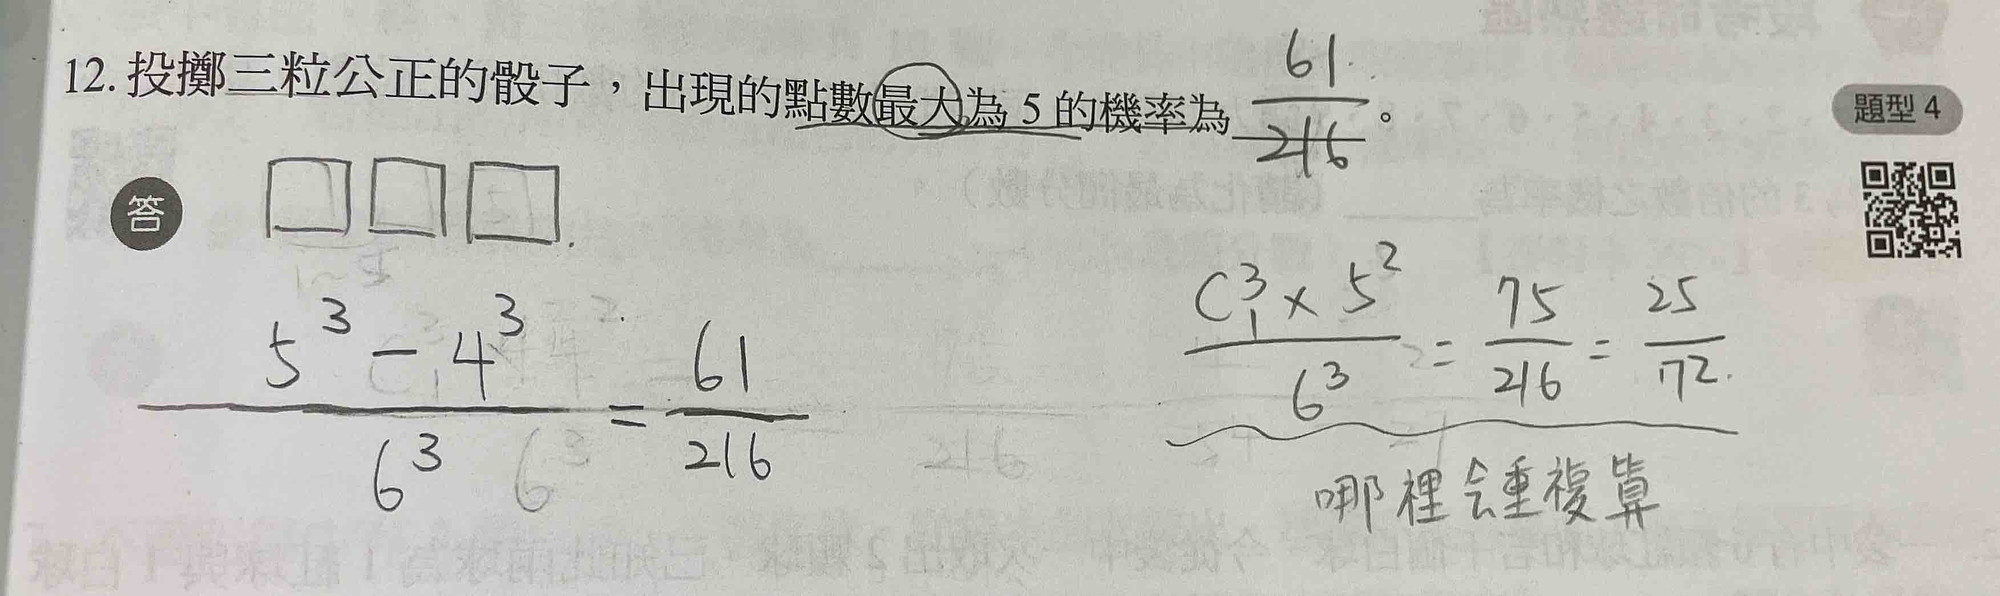 12. 投擲三粒公正的骰子，出現的點數最大為 5 的機率為 61/216 。
題型 4
答
1~5
(5³ - 4³)/6³ = 61/216
(C³₁ × 5²)/6³ = 75/216 = 25/72.
哪裡会重複算